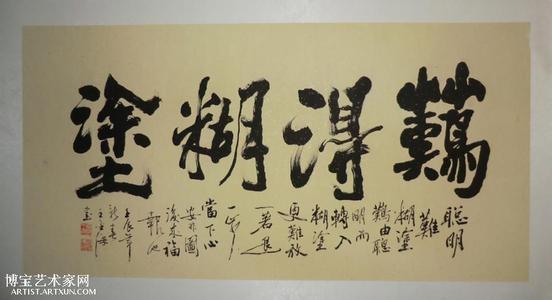 難得糊塗
聰明
難
糊塗
難由聰
明而
轉入
糊塗
更難放
一著退
一步
當下心
安非圖
後來福
報也
壬辰年
新春
書
博宝艺术家网
ARTIST.ARTXUN.COM